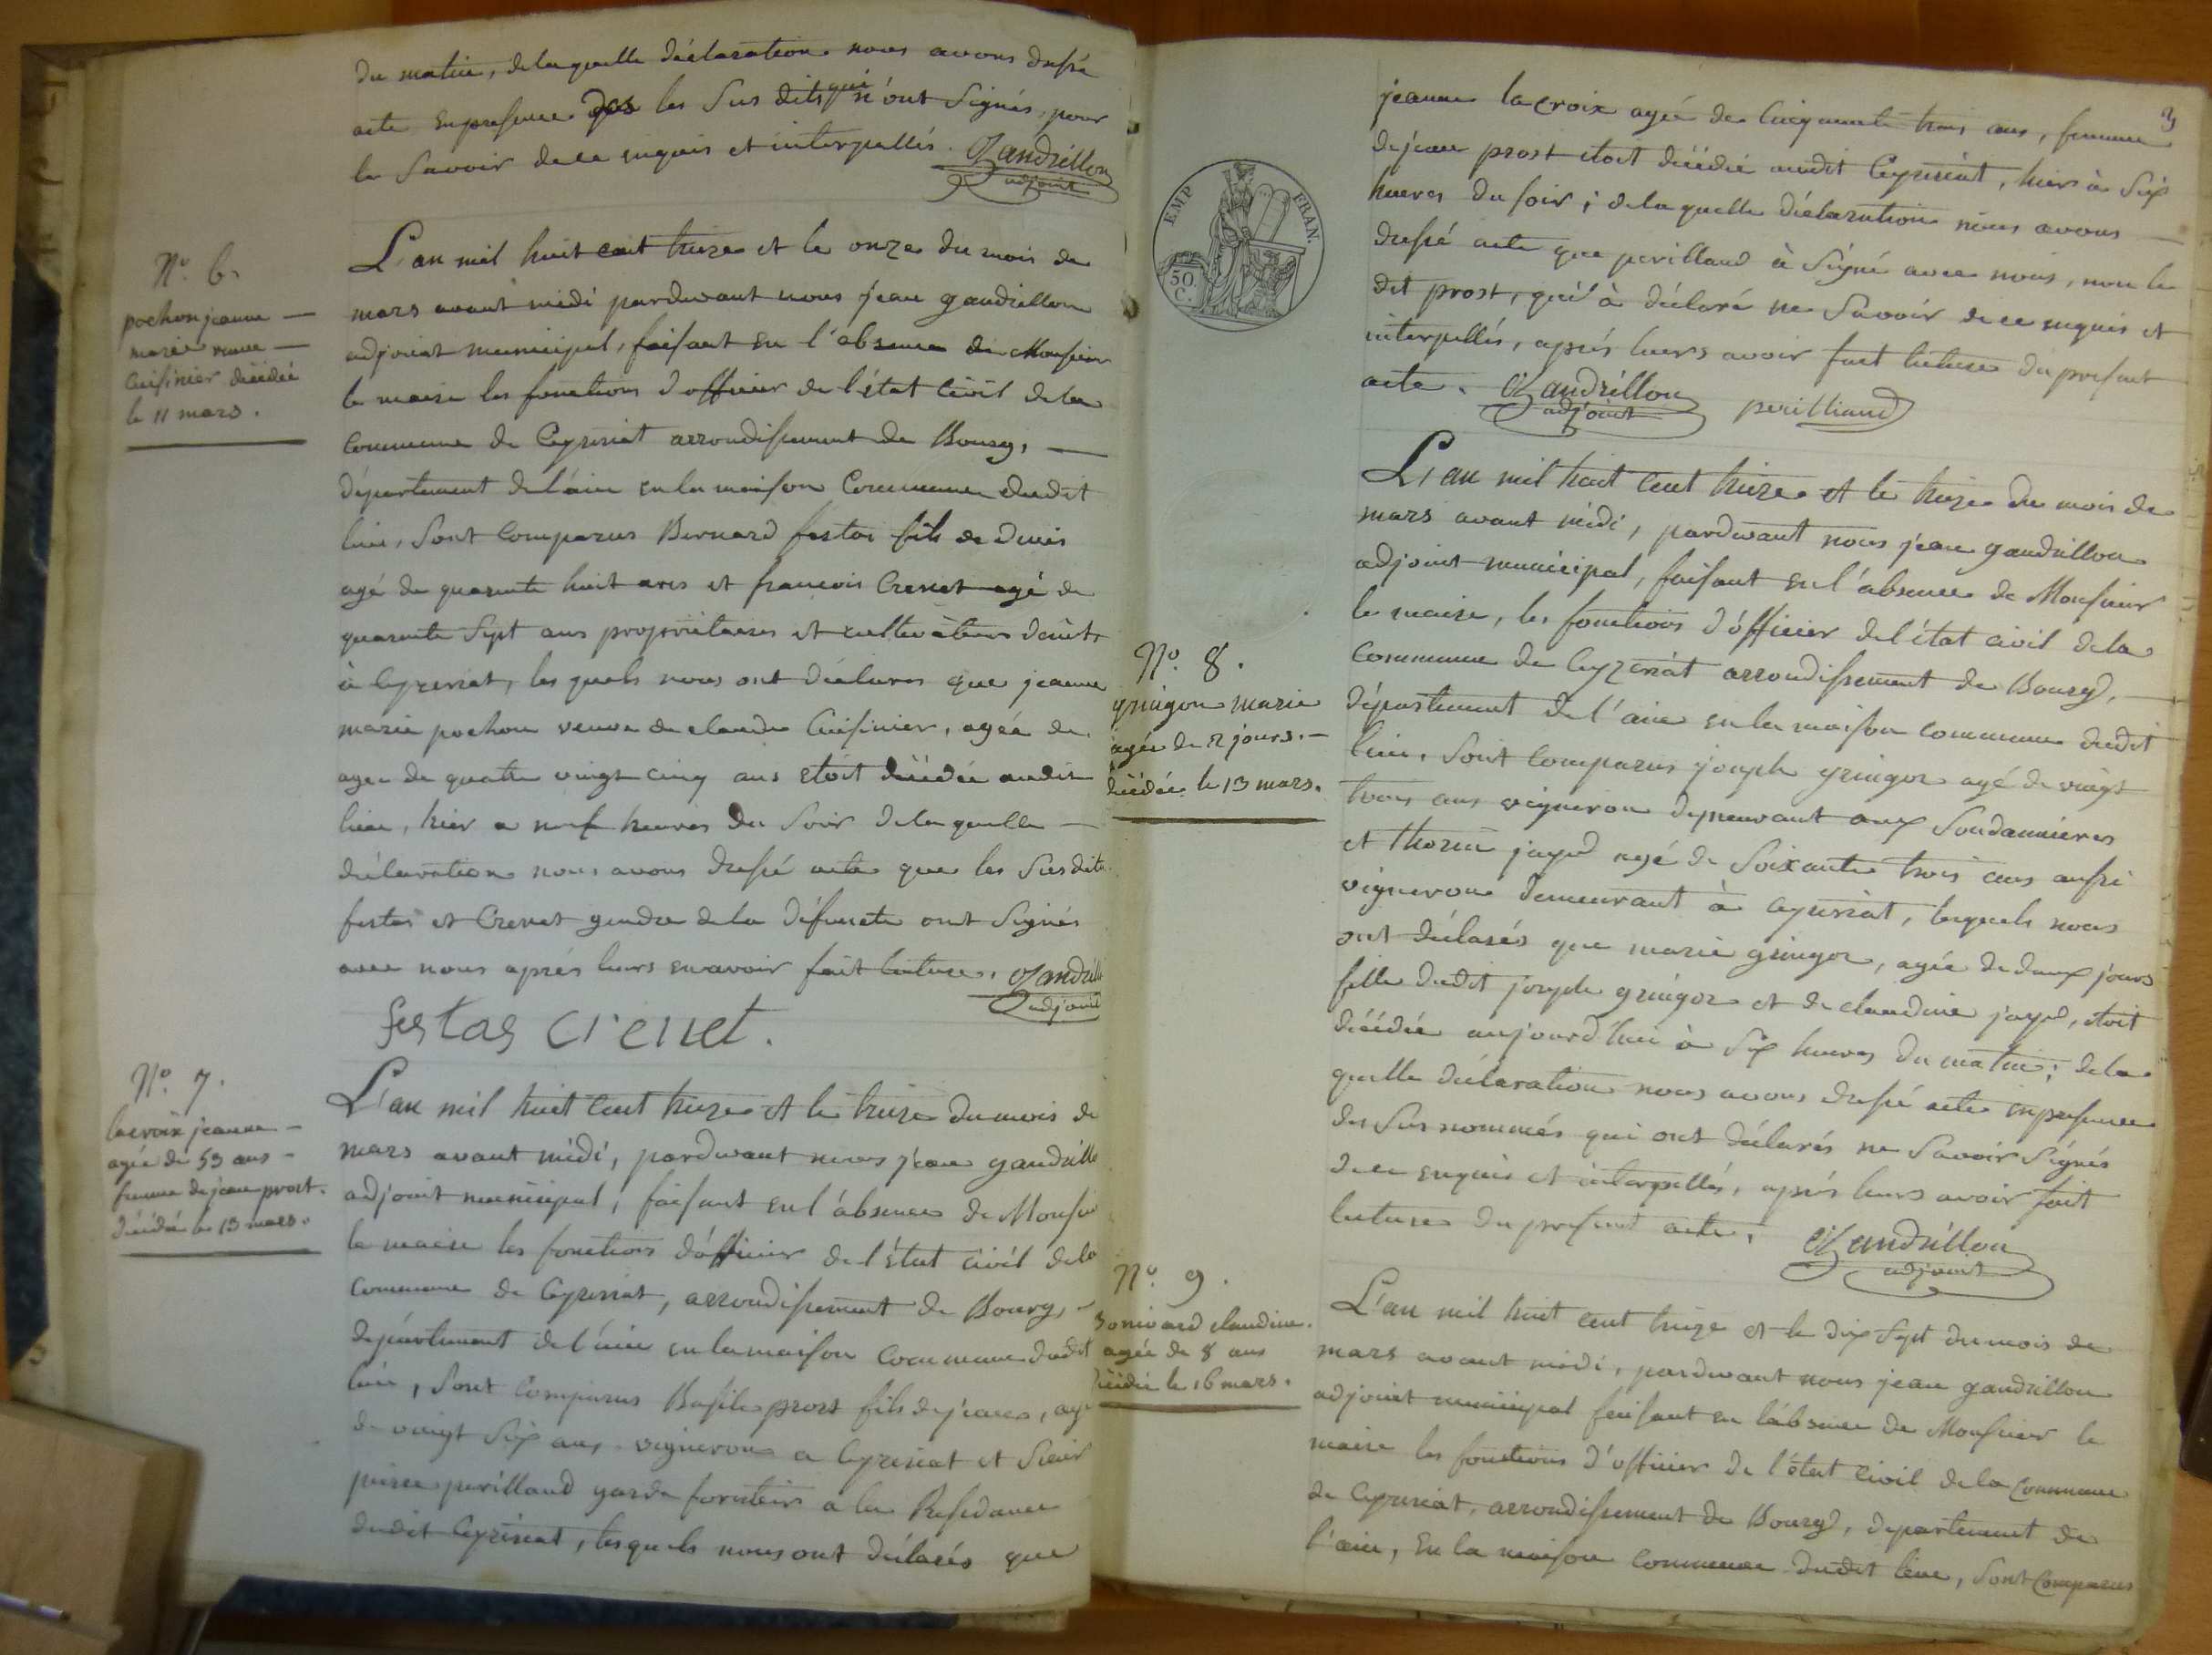 du matin, de laquelle déclaration nous avons dressé
acte en presence des les Sus dits qui n'ont Signés, pour
le Savoir de ce enquis et interpellés. Gandrillon
adjoint
N.º 6.
pochon jeanne —
marie veuve —
Cuisinier décédée
le 11 mars.
L'an mil huit cent treize et le onze du mois de
mars avant midi pardevant nous jean gandrillon
adjoint municipal, faisant en l'absence de Monsieur
le maire les fonctions d'officier de l'état Civil de la
Commune de Ceyzeriat arrondissement de Bourg, —
département de l'ain en la maison Commune dudit
lieu, Sont Comparus Bernard festas fils de denis
agé de quarente huit ans et francois Crenet agé de
quarente Sept ans proprietaires et cultivateurs demts
à Ceyzeriat, les quels nous ont déclarés que jeanne
marie pochon veuve de claude Cuisinier, agée de
agee de quatre vingt cinq ans etoit décédée audit
lieu, hier a neuf heures du Soir de la quelle —
déclaration nous avons dressé acte que les Susdits
festas et Crenet gendre de la défuncte ont Signés
avec nous après leurs en avoir fait lecture. Gandrill
adjoint
festas crenet.
N.º 7.
lacroix jeanne —
agée de 53 ans —
femme de jean prost.
décédée le 13 mars.
L'an mil huit cent treize et le treize du mois de
mars avant midi, pardevant nous jean gandrillo
adjoint municipal, faisant en l'absence de Monsieu
le maire les fonctions d'officier de l'état civil de la
Commune de Ceyzeriat, arrondissement de Bourg, —
département de l'ain en la maison Commune dudit
lieu, Sont Comparus Basile prost fils de jean, agé
de vingt Six ans vigneron a Ceyzeriat et Sieur
pierre perilland garde forestiers a la Residance
dudit Ceyzeriat, lesquels nous ont déclarés que
3
jeanne lacroix agée de Cinquante trois ans, femme
de jean prost etoit décédée audit Ceyzeriat, hier à Six
heures du soir; de la quelle déclaration nous avons —
dressé acte que perilland à Signé avec nous, non le
dit prost, qui à déclaré ne Savoir de ce enquis et
interpellés, après leurs avoir fait lecture du present
acte. Gandrillon perilliand
adjoint
EMP. FRAN.
50.
C.
N.º 8.
gringoz marie
agée de 2 jours. —
décédée le 13 mars.
L'an mil huit Cent treize et le treize du mois de
mars avant midi, pardevant nous jean gandrillon
adjoint municipal, faisant en l'absence de Monsieur
le maire, les fonctions d'officier de l'état civil de la
Commune de Ceyzeriat arrondissement de Bourg, —
département de l'ain en la maison commune dudit
lieu, Sont Comparus joseph gringoz agé de vingt
trois ans vigneron demeurant aux Soudannieres
et thomas jayd agé de Soixante trois ans aussi
vigneron demeurant à Ceyzeriat, lesquels nous
ont déclarés que marie gringoz, agée de deux jours
fille dudit joseph gringoz et de claudine jayd, etoit
décédée aujourd'hui à Six heures du matin; de la
quelle déclaration nous avons dressé acte en presence
des Sus nommés qui ont déclarés ne Savoir Signés
de ce enquis et interpellés, après leurs avoir fait
lecture du present acte. Gandrillon
adjoint
N.º 9.
Bonivard claudine.
agée de 8 ans
décédée le 16 mars.
L'an mil huit cent treize et le dix Sept du mois de
mars avant midi, pardevant nous jean gandrillon
adjoint municipal faisant en l'absence de Monsieur le
maire les fonctions d'officier de l'état Civil de la Commune
de Ceyzeriat, arrondissement de Bourg, departement de
l'ain, En la maison Commune dudit lieu, Sont Comparus